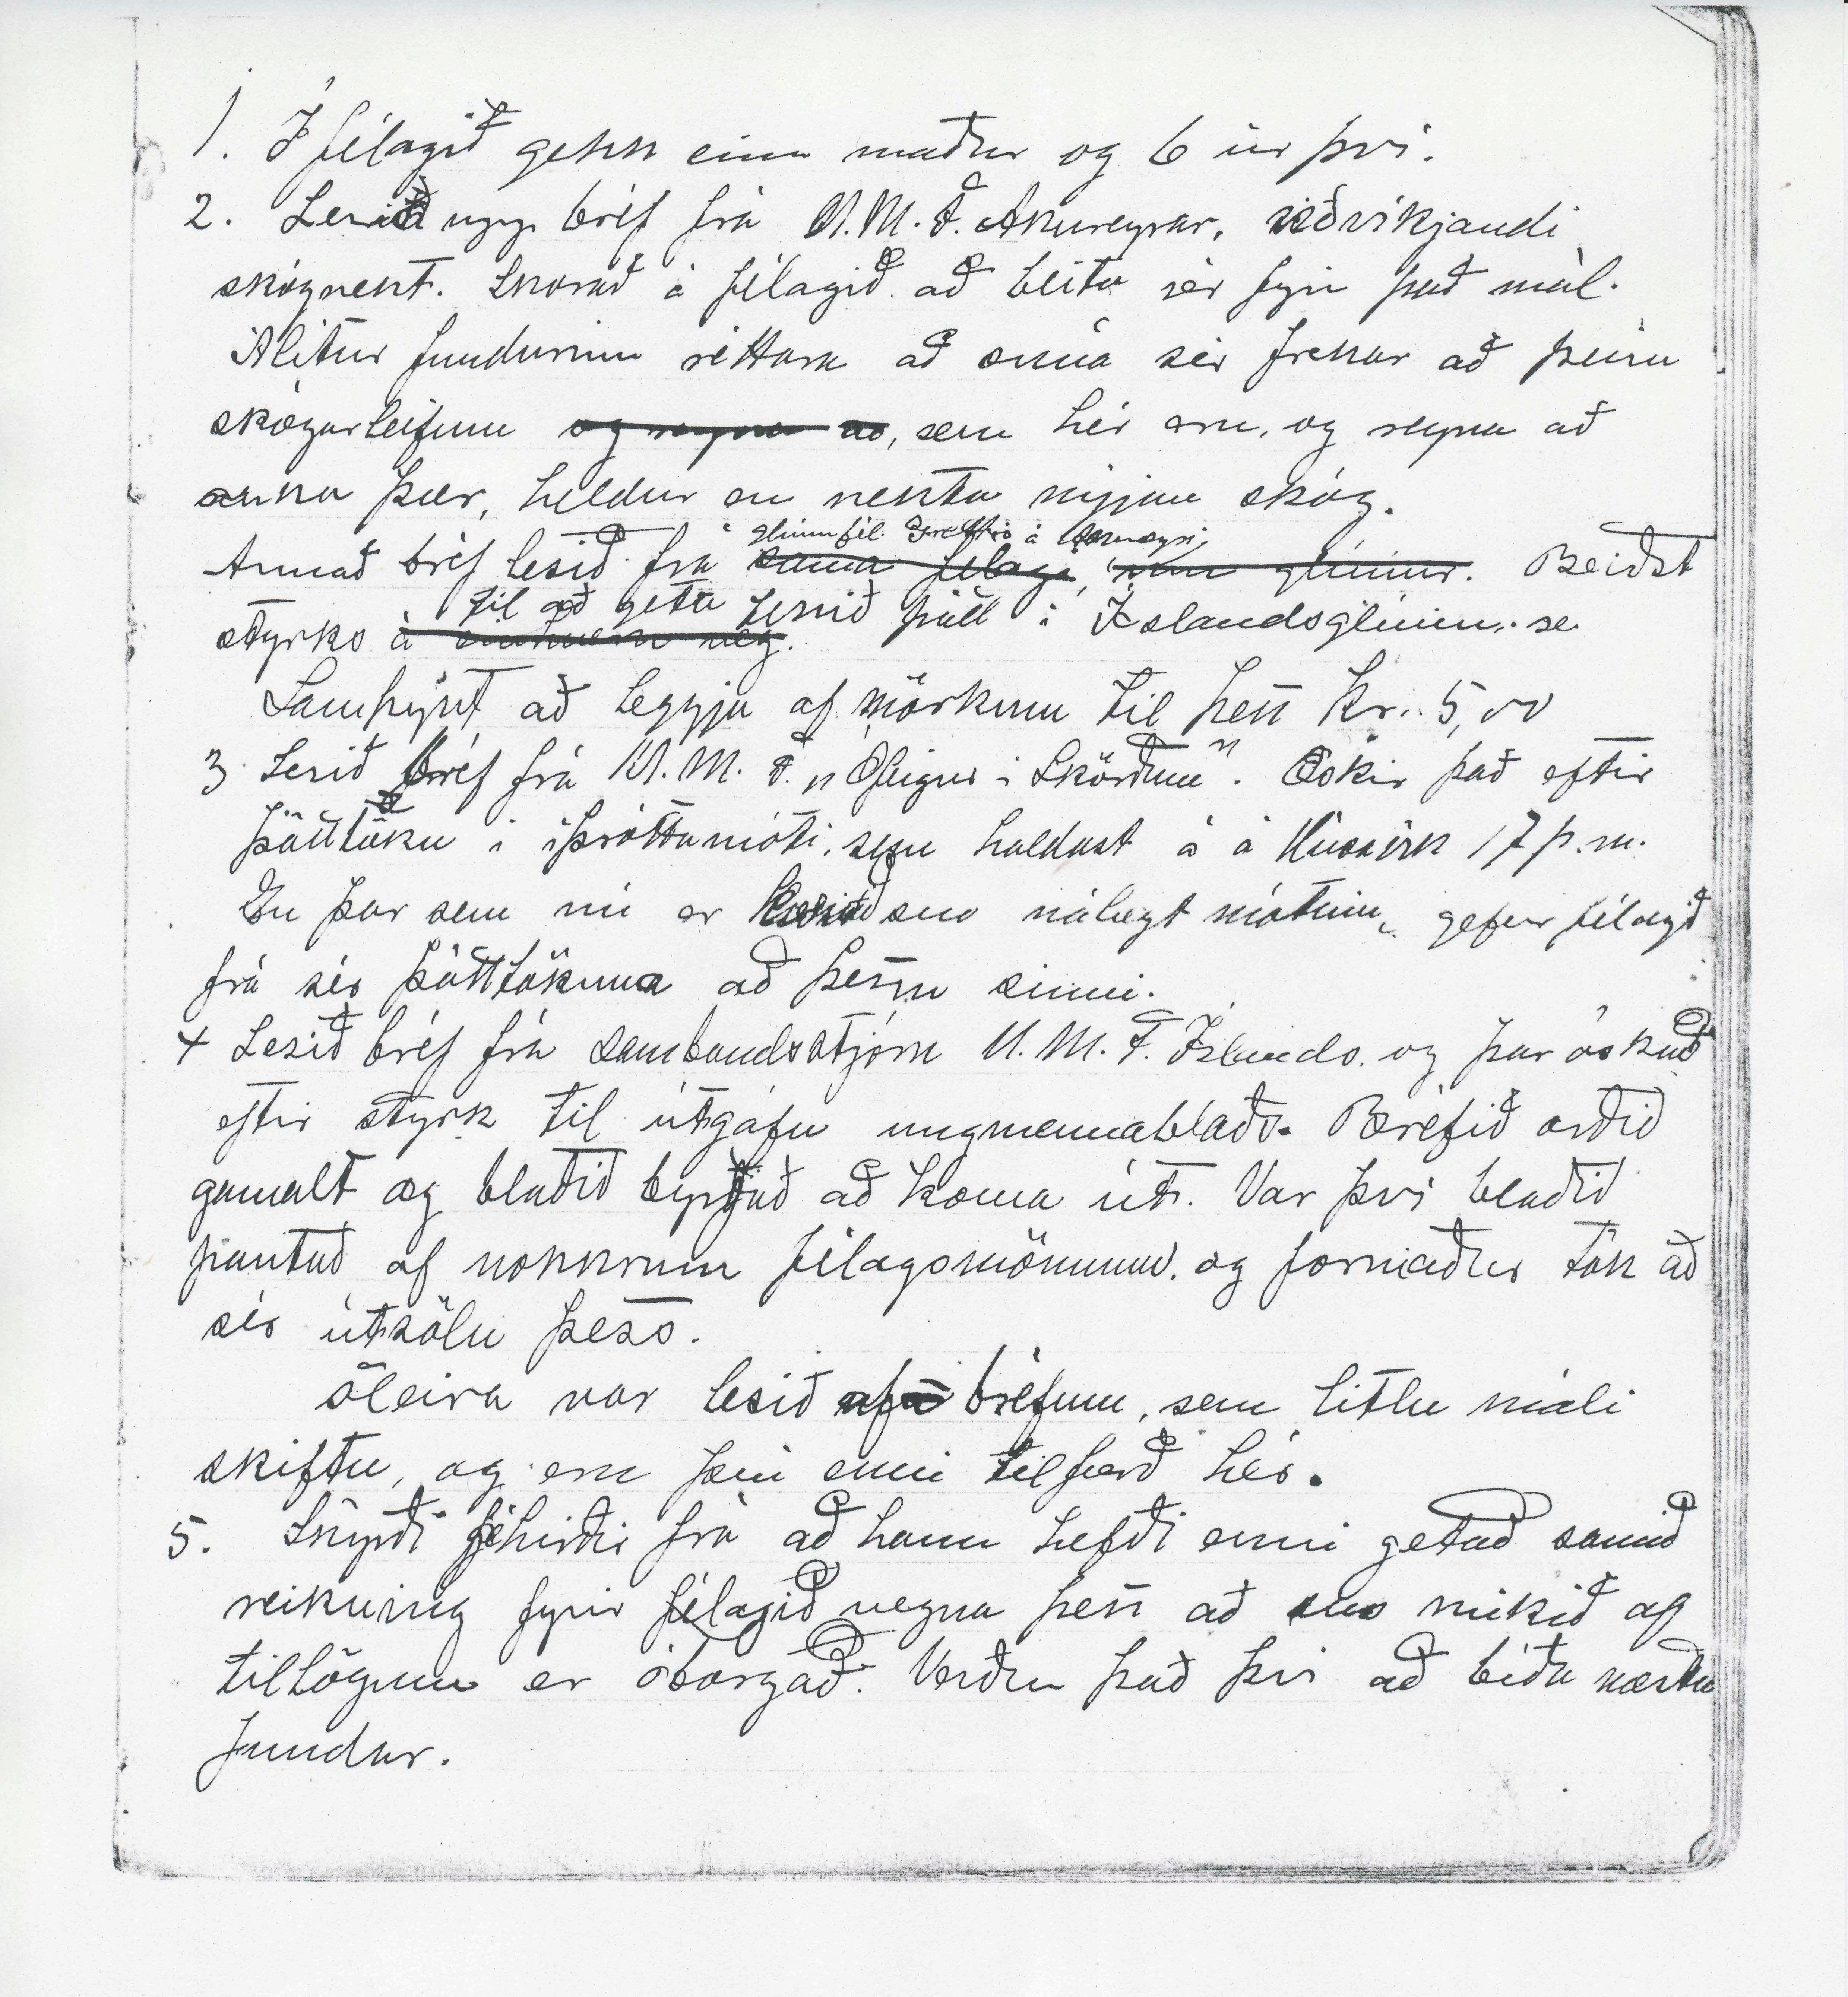 1. Í félagið gekk einn maður og 6 úr því.
2. Lesið upp bréf frá U.M.F. Akureyrar, viðvíkjandi
skógrækt. Skorað á félagið að beita sér fyrir það mál.
Álítur fundurinn réttara að snúa sér frekar að þeim
skógarleifum og reyna að, sem hér eru, og reyna að
auka þær, heldur en rækta nýjan skóg.
glímufél. Grettis á Akureyri,
Annað bréf lesið frá sama félagi, um glímur. Beiðst
til að geta tekið þátt í Íslandsglímunni.
styrks á einhvern veg.
Samþykt að leggja af mörkum til þess Kr. 5,00
3 Lesið bréf frá U.M.F. „Ófeigur í Skörðum". Óskir það eftir
þátttöku í íþróttamóti, sem haldast á á Húsavík 17 þ.m.
En þar sem nú er komið svo nálægt mótinu, gefur félagið
frá sér þátttökuna að þessu sinni.
4 Lesið bréf frá sambandsstjórn U.M.F. Íslands. og þar óskað
eftir styrk til útgáfu ungmennablaðs. Bréfið orðið
gamalt og blaðið byrjað að koma út. Var því blaðið
pantað af nokkrum félagsmönnum. og formaður tók að
sér útsölu þess.
Fleira var lesið af bréfum, sem litlu máli
skiftu, og eru því ekki tilfærð hér.
5. Skýrði féhirðir frá að hann hefði ekki getað samið
reikning fyrir félagið vegna þess að svo mikið af
tillögum er óborgað. Verður það því að bíða næsta
fundar.